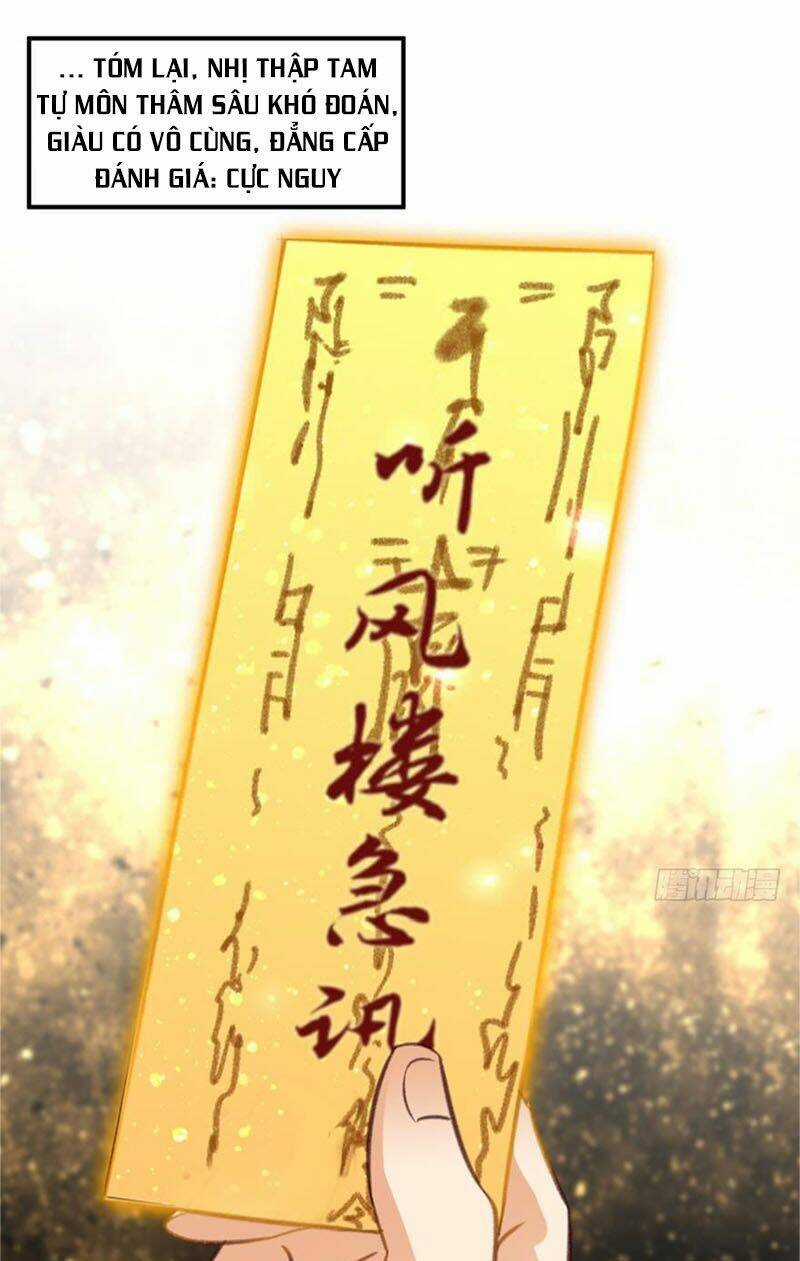 ... TÓM LẠI, NHỊ THẬP TAM
TỰ MÔN THÂM SÂU KHÓ ĐOÁN,
GIÀU CÓ VÔ CÙNG, ĐẲNG CẤP
ĐÁNH GIÁ: CỰC NGUY
听风楼急讯
腾讯动漫